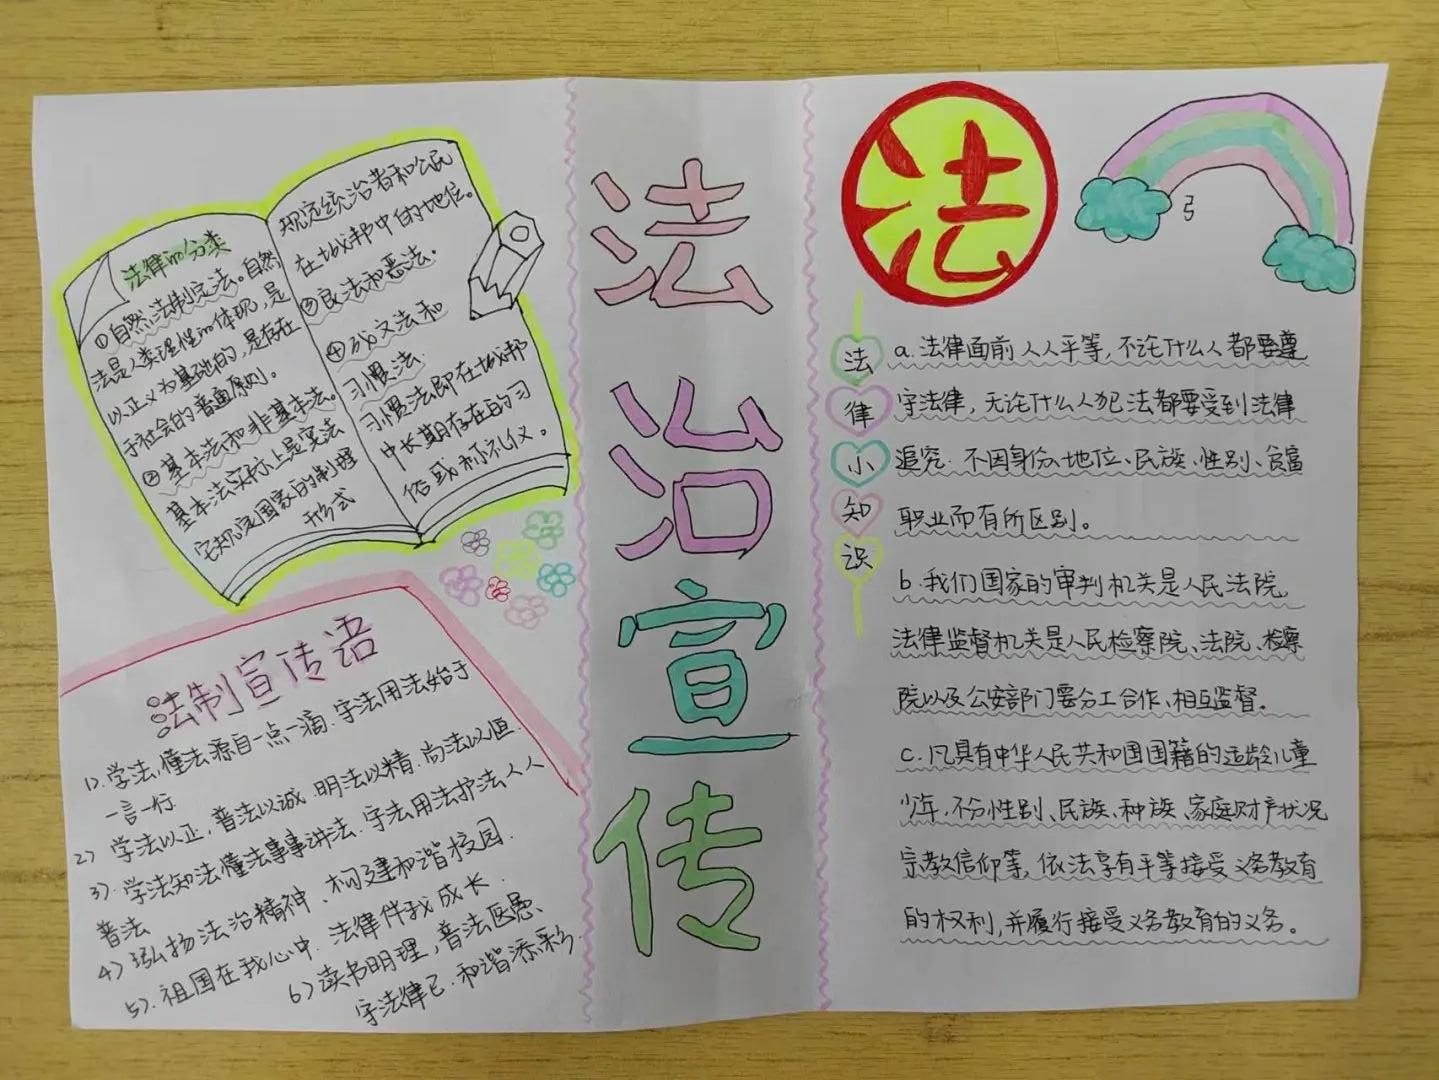 法律的分类
①自然法制定法。自然
法是人类理性的体现,是
以正义为基础的,是存在
于社会的普遍原则。
②基本法和非基本法。
基本法实际上是宪法
它规定国家的制理
形式
规定统治者和公民
在城邦中的地位。
③良法和恶法.
④成文法和
习惯法
习惯法即在城邦
中长期存在的习
俗或称礼仪。
法制宣传语
1).学法,懂法源自一点一滴.守法用法始于
一言一行
2)学法以正,普法以诚.明法以精.尚法以恒.
3).学法知法懂法事事讲法.守法用法护法人人
普法
4)弘扬法治精神、构建和谐校园.
5).祖国在我心中.法律伴我成长.
6)读书明理,普法医愚、
守法律己.和谐添彩.
法
治
宣
传
法
法
律
小
知
识
a.法律面前人人平等,不论什么人都要遵
守法律,无论什么人犯法都要受到法律
追究.不因身份、地位、民族、性别、贫富
职业而有所区别。
b.我们国家的审判机关是人民法院,
法律监督机关是人民检察院、法院、检察
院以及公安部门要分工合作、相互监督。
c.凡具有中华人民共和国国籍的适龄儿童
少年,不分性别、民族、种族、家庭财产状况
宗教信仰等,依法享有平等接受义务教育
的权利,并履行接受义务教育的义务。